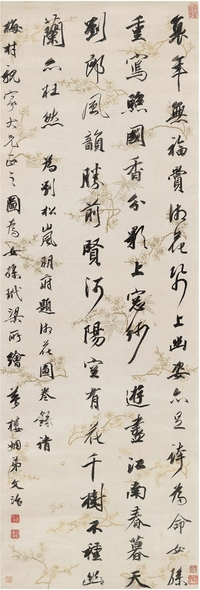 衰年無福賞湘花紙上幽姿亦足誇為命女孫
重寫照國香分影上窗紗　遊盡江南春暮天
劉郎風韻勝前賢河陽空有花千樹不種幽
蘭亦枉然　為劉松嵐明府題湘花圖卷錄請
梅村親家大兄正之圖為女孫玳梁所繪　夢樓姻弟文治